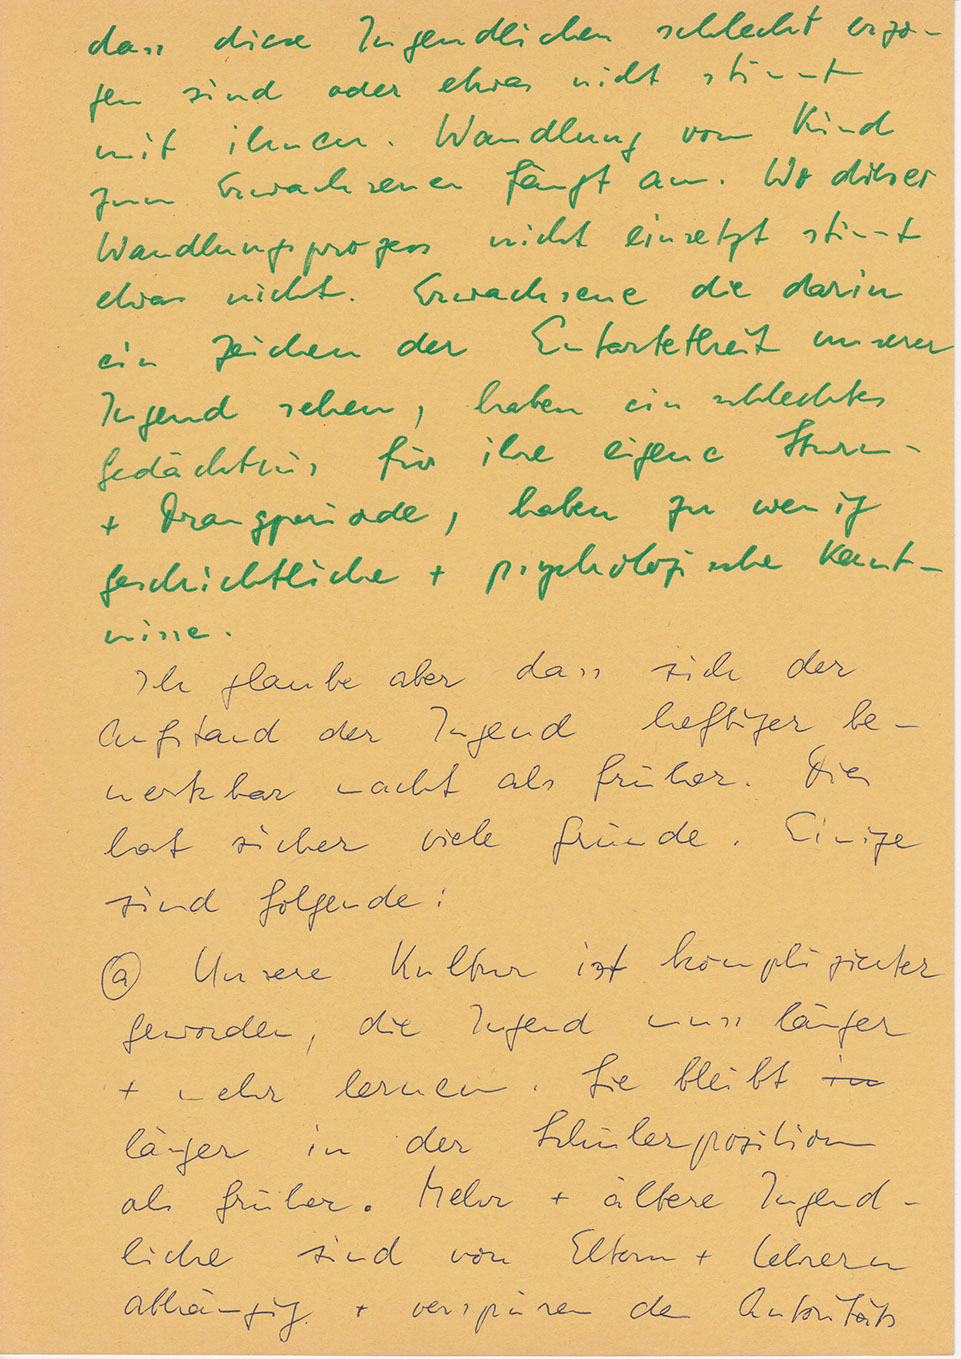 dass diese Jugendlichen schlecht erzo-
gen sind oder etwas nicht stimmt
mit ihnen. Wandlung vom Kind
zum Erwachsenen fängt an. Wo dieser
Wandlungsprozess nicht einsetzt stimmt
etwas nicht. Erwachsene die darin
ein Zeichen der Entartetheit unserer
Jugend sehen, haben ein schlechtes
Gedächtnis für ihre eigene Sturm-
+ Drangperiode, haben zu wenig
geschichtliche + psychologische Kennt-
nisse.
Ich glaube aber dass sich der
Aufstand der Jugend heftiger be-
merkbar macht als früher. Dies
hat sicher viele Gründe. Einige
sind folgende:
a Unsere Kultur ist komplizierter
geworden, die Jugend muss länger
+ mehr lernen. Sie bleibt in
länger in der Schülerposition
als früher. Mehr + ältere Jugend-
liche sind von Eltern + Lehrern
abhängig + verspüren den Autoritäts